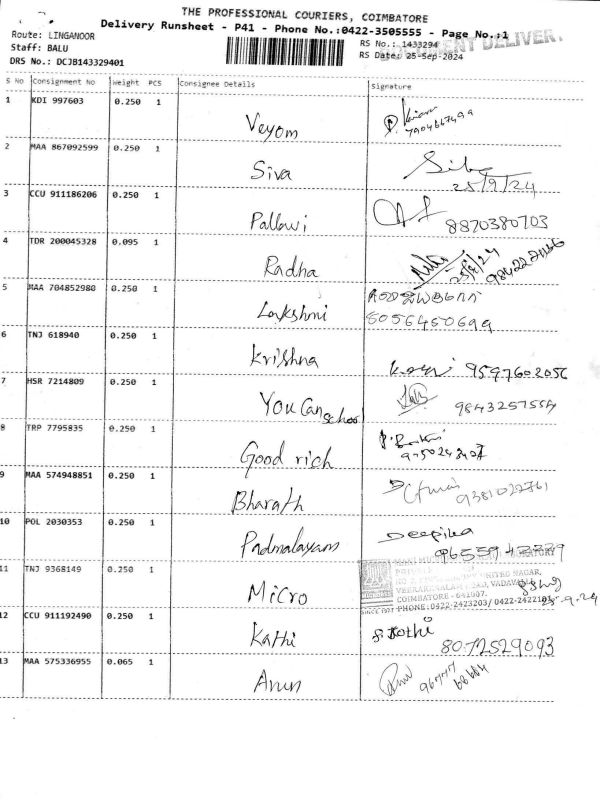 THE PROFESSIONAL COURIERS, COIMBATORE
Delivery Runsheet - P41 - Phone No.:0422-3505555 - Page No.:1
Route: LINGANOOR
Staff: BALU
DRS No.: DCJB143329401
RS No.: 1433294
RS Date: 25-Sep-2024
S No Consignment No Weight PCS Consignee Details Signature
1 KDI 997603 0.250 1 Veyom
7904667499
2 MAA 867092599 0.250 1 Siva
25/9/24
3 CCU 911186206 0.250 1 Pallavi 8870380703
4 TDR 200045328 0.095 1 Radha
5 MAA 704852980 0.250 1 Lakshmi
8056450699
6 TNJ 618940 0.250 1 Krishna 9597602056
7 HSR 7214809 0.250 1 You Can School 9843257554
8 TRP 7795835 0.250 1 Good rich
9 MAA 574948851 0.250 1 Bharath 9381022761
10 POL 2030353 0.250 1 Padmalayam Deepika
11 TNJ 9368149 0.250 1 Micro
COIMBATORE - 641007.
PHONE: 0422-2423203/ 0422-2422103
25-9-24
12 CCU 911192490 0.250 1 Kathi S. Jothi
8072529093
13 MAA 575336955 0.065 1 Arun